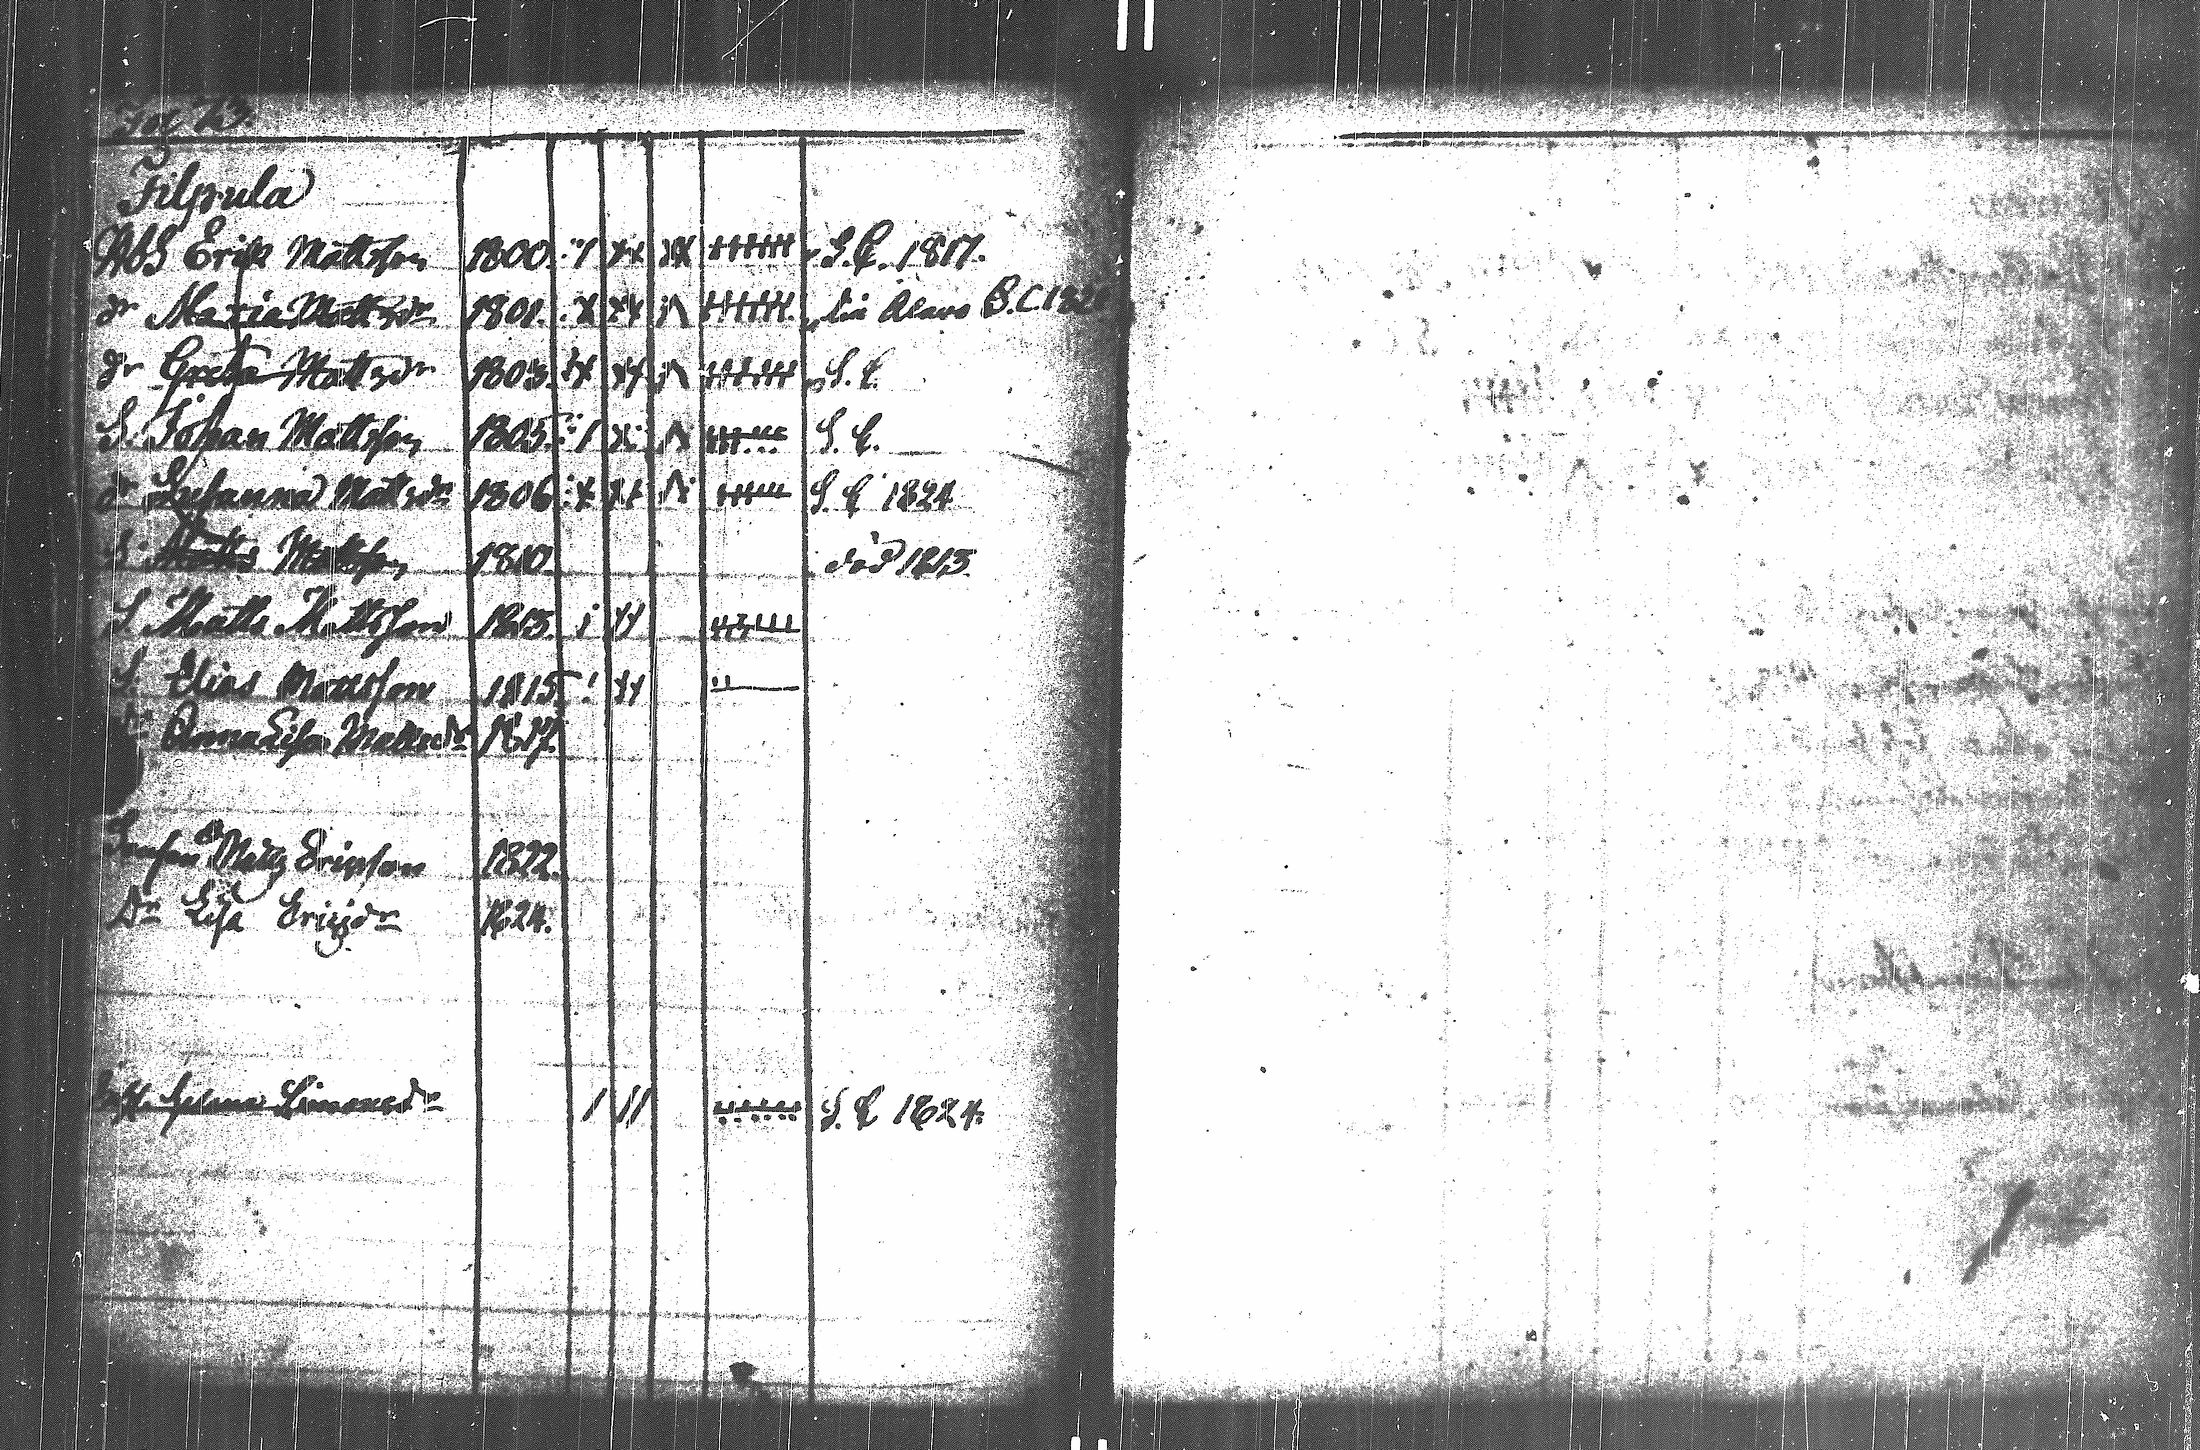 Filpula
Erik Mattsson 1800. S.C. 1817.
dr Maria Mattsdr 1801. B.C. 182
dr Greta Mattsdr 1803. S.C.
S. Johan Mattsson 1805. S.C.
dr Susanna Mattsdr 1806 S.C 1824
S. Matts Mattsson 1810. död 1813.
S. Matts Mattsson 1813.
S. Elias Mattsson 1815
Anna Lisa Mattsdr 1817.
Matts Ericsson 1822.
Dr Lisa Ericsdr 1824.
Simonsdr S.C 1824.